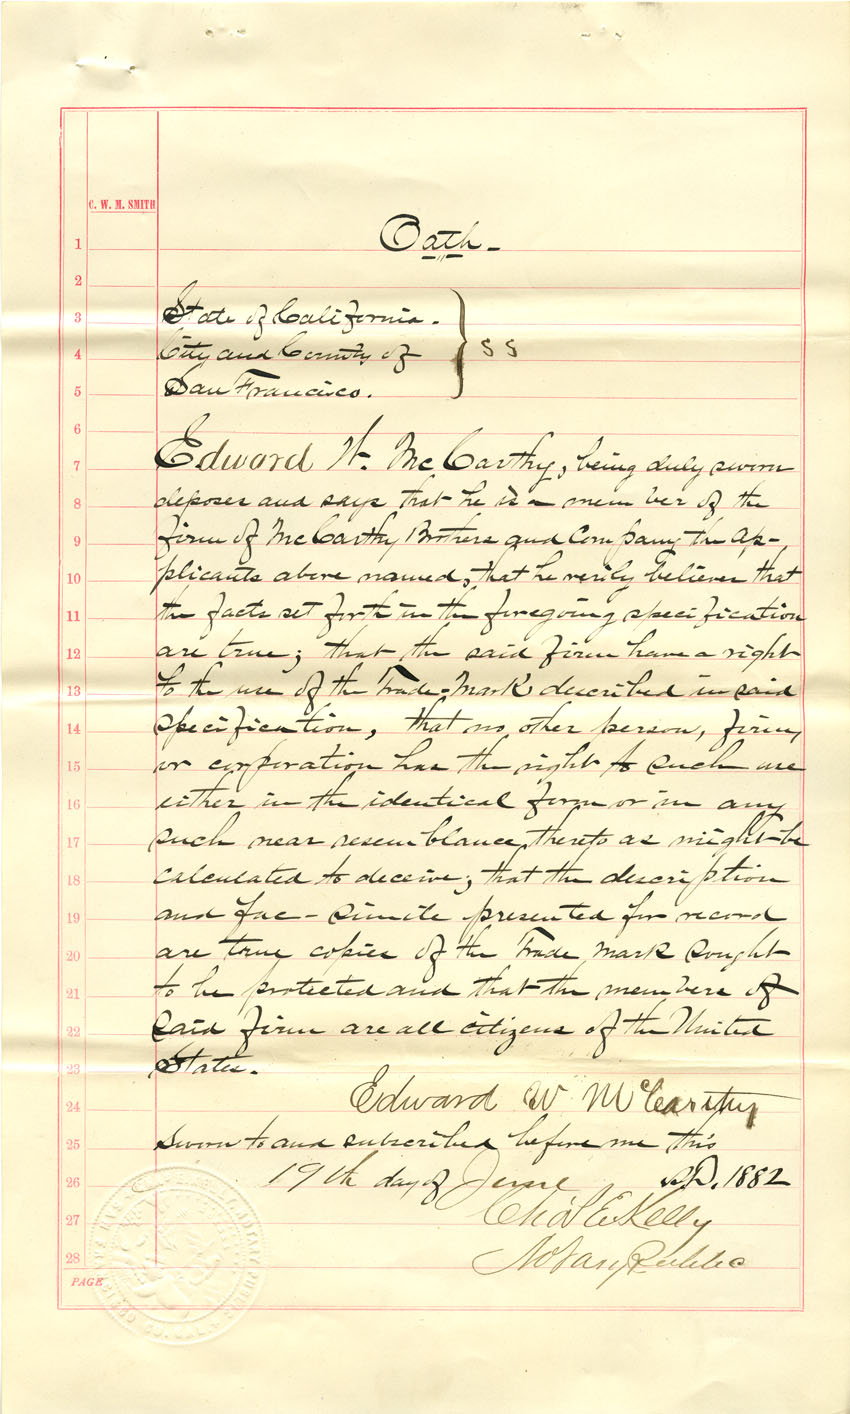 C. W. M. SMITH
1 Oath -
2
3 State of California. } ss
4 City and County of
5 San Francisco.
6
7 Edward W. McCarthy, being duly sworn
8 deposes and says that he is a member of the
9 firm of McCarthy Brothers and Company the ap-
10 plicants above named, that he verily believes that
11 the facts set forth in the foregoing specification
12 are true; that the said firm have a right
13 to the use of the Trade-Mark described in said
14 specification, that no other person, firm,
15 or corporation has the right to such use
16 either in the identical form or in any
17 such near resemblance thereto as might be
18 calculated to deceive; that the description
19 and fac-simile presented for record
20 are true copies of the Trade Mark sought
21 to be protected and that the members of
22 said firm are all citizens of the United
23 States.
24 Edward W McCarthy
25 Sworn to and subscribed before me this
26 19th day of June A.D. 1882
27 Chas E Kelly
28 Notary Public
PAGE